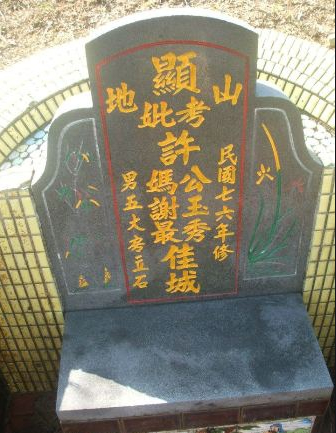 山
地
民國七六年修
顯
考
妣
許
公玉秀
媽謝最
佳城
男五大房立石